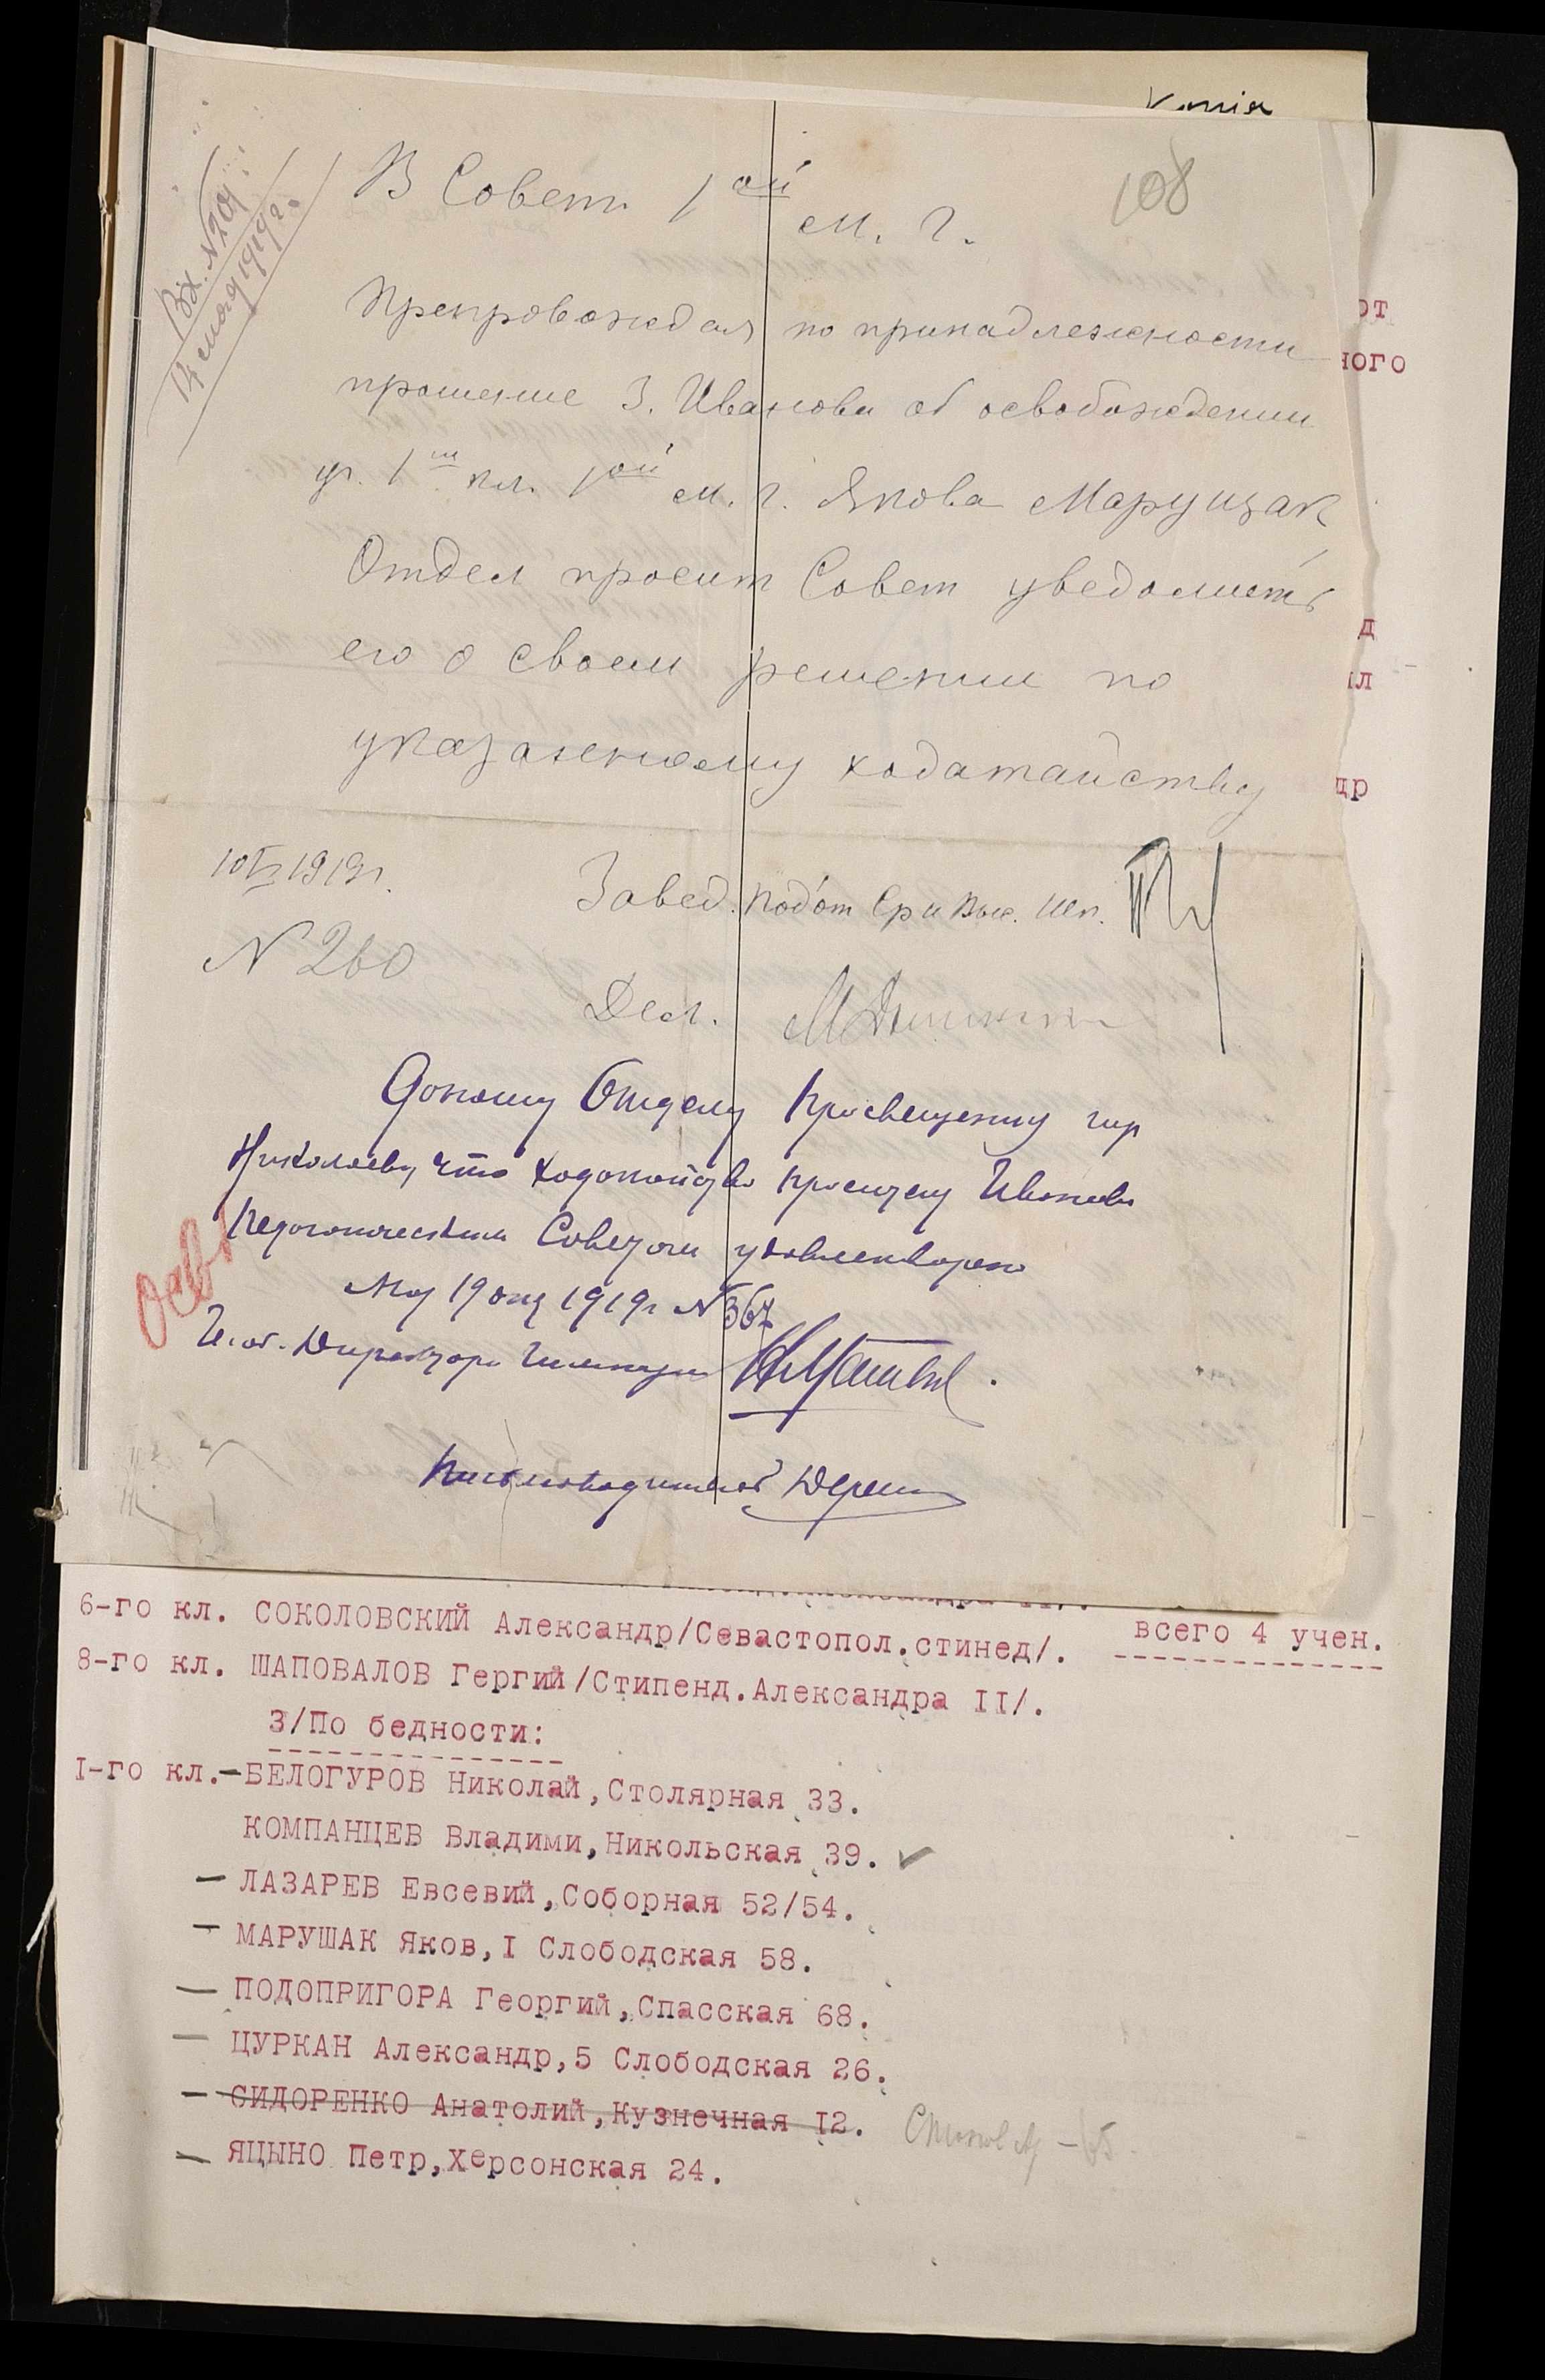 108
Вх. № 201
14 мая 1919 г.
В Совет 1ой
м. г.
Препровождая по принадлежности
прошение З. Иванова об освобождении
уч. 1го кл. 1ой м. г. Якова Марущак
Отдел просит Совет уведомить
его о своем решении по
указанному ходатайству
10 V 1919 г.
Завед. Подот Ср и Выс. Шк.
N 260
Дел.
Доношу Отделу Просвещения гор
Николаева, что ходатайство Иванова
Педагогическим Советом удовлетворено
Мая 19 дня 1919 г N 367
И. об. Директора Гимназии
Письмоводитель
Осв.
от
ного
д
др
6-го кл. СОКОЛОВСКИЙ Александр/Севастопол.стинед/. всего 4 учен.
8-го кл. ШАПОВАЛОВ Гергий/Стипенд.Александра II/.
3/По бедности:
I-го кл.-БЕЛОГУРОВ Николай,Столярная 33.
КОМПАНЦЕВ Владими,Никольская 39. ✓
— ЛАЗАРЕВ Евсевий,Соборная 52/54.
— МАРУШАК Яков,I Слободская 58.
— ПОДОПРИГОРА Георгий,Спасская 68.
— ЦУРКАН Александр,5 Слободская 26.
— СИДОРЕНКО Анатолий,Кузнечная I2.
— ЯЦЫНО Петр,Херсонская 24.